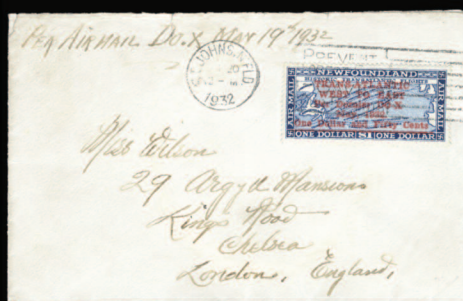 Per Airmail Do. X May 19th 1932
ST. JOHN'S. NFLD.
1932
PREVENT
NEWFOUNDLAND
AIR MAIL
TRANS-ATLANTIC
WEST TO EAST
Per Dornier DO-X
May, 1932.
One Dollar and Fifty Cents
AIR MAIL
ONE DOLLAR $1 ONE DOLLAR
Miss Wilson
29 Argyll Mansions
Kings Road
Chelsea
London, England,